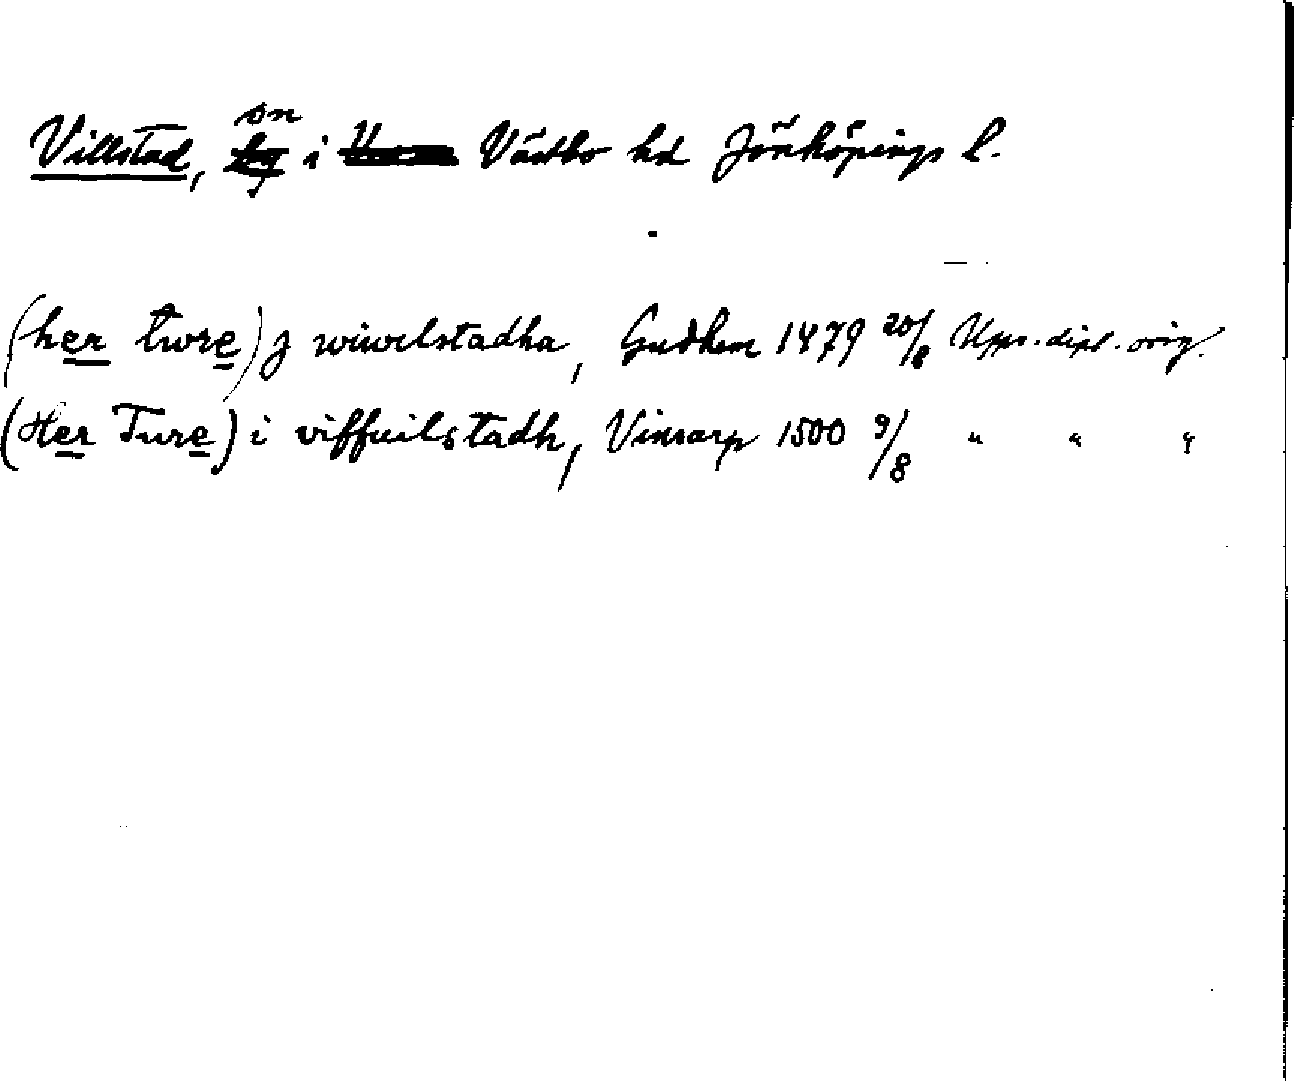 Villstad, sn i Västbo hd Jönköpings l.
(her twre) j wiwelstadha, Gudhem 1479 20/8 Upps. dipl. orig.
(Her Ture) i viffuilstadh, Vinsarp 1500 9/8 " " "